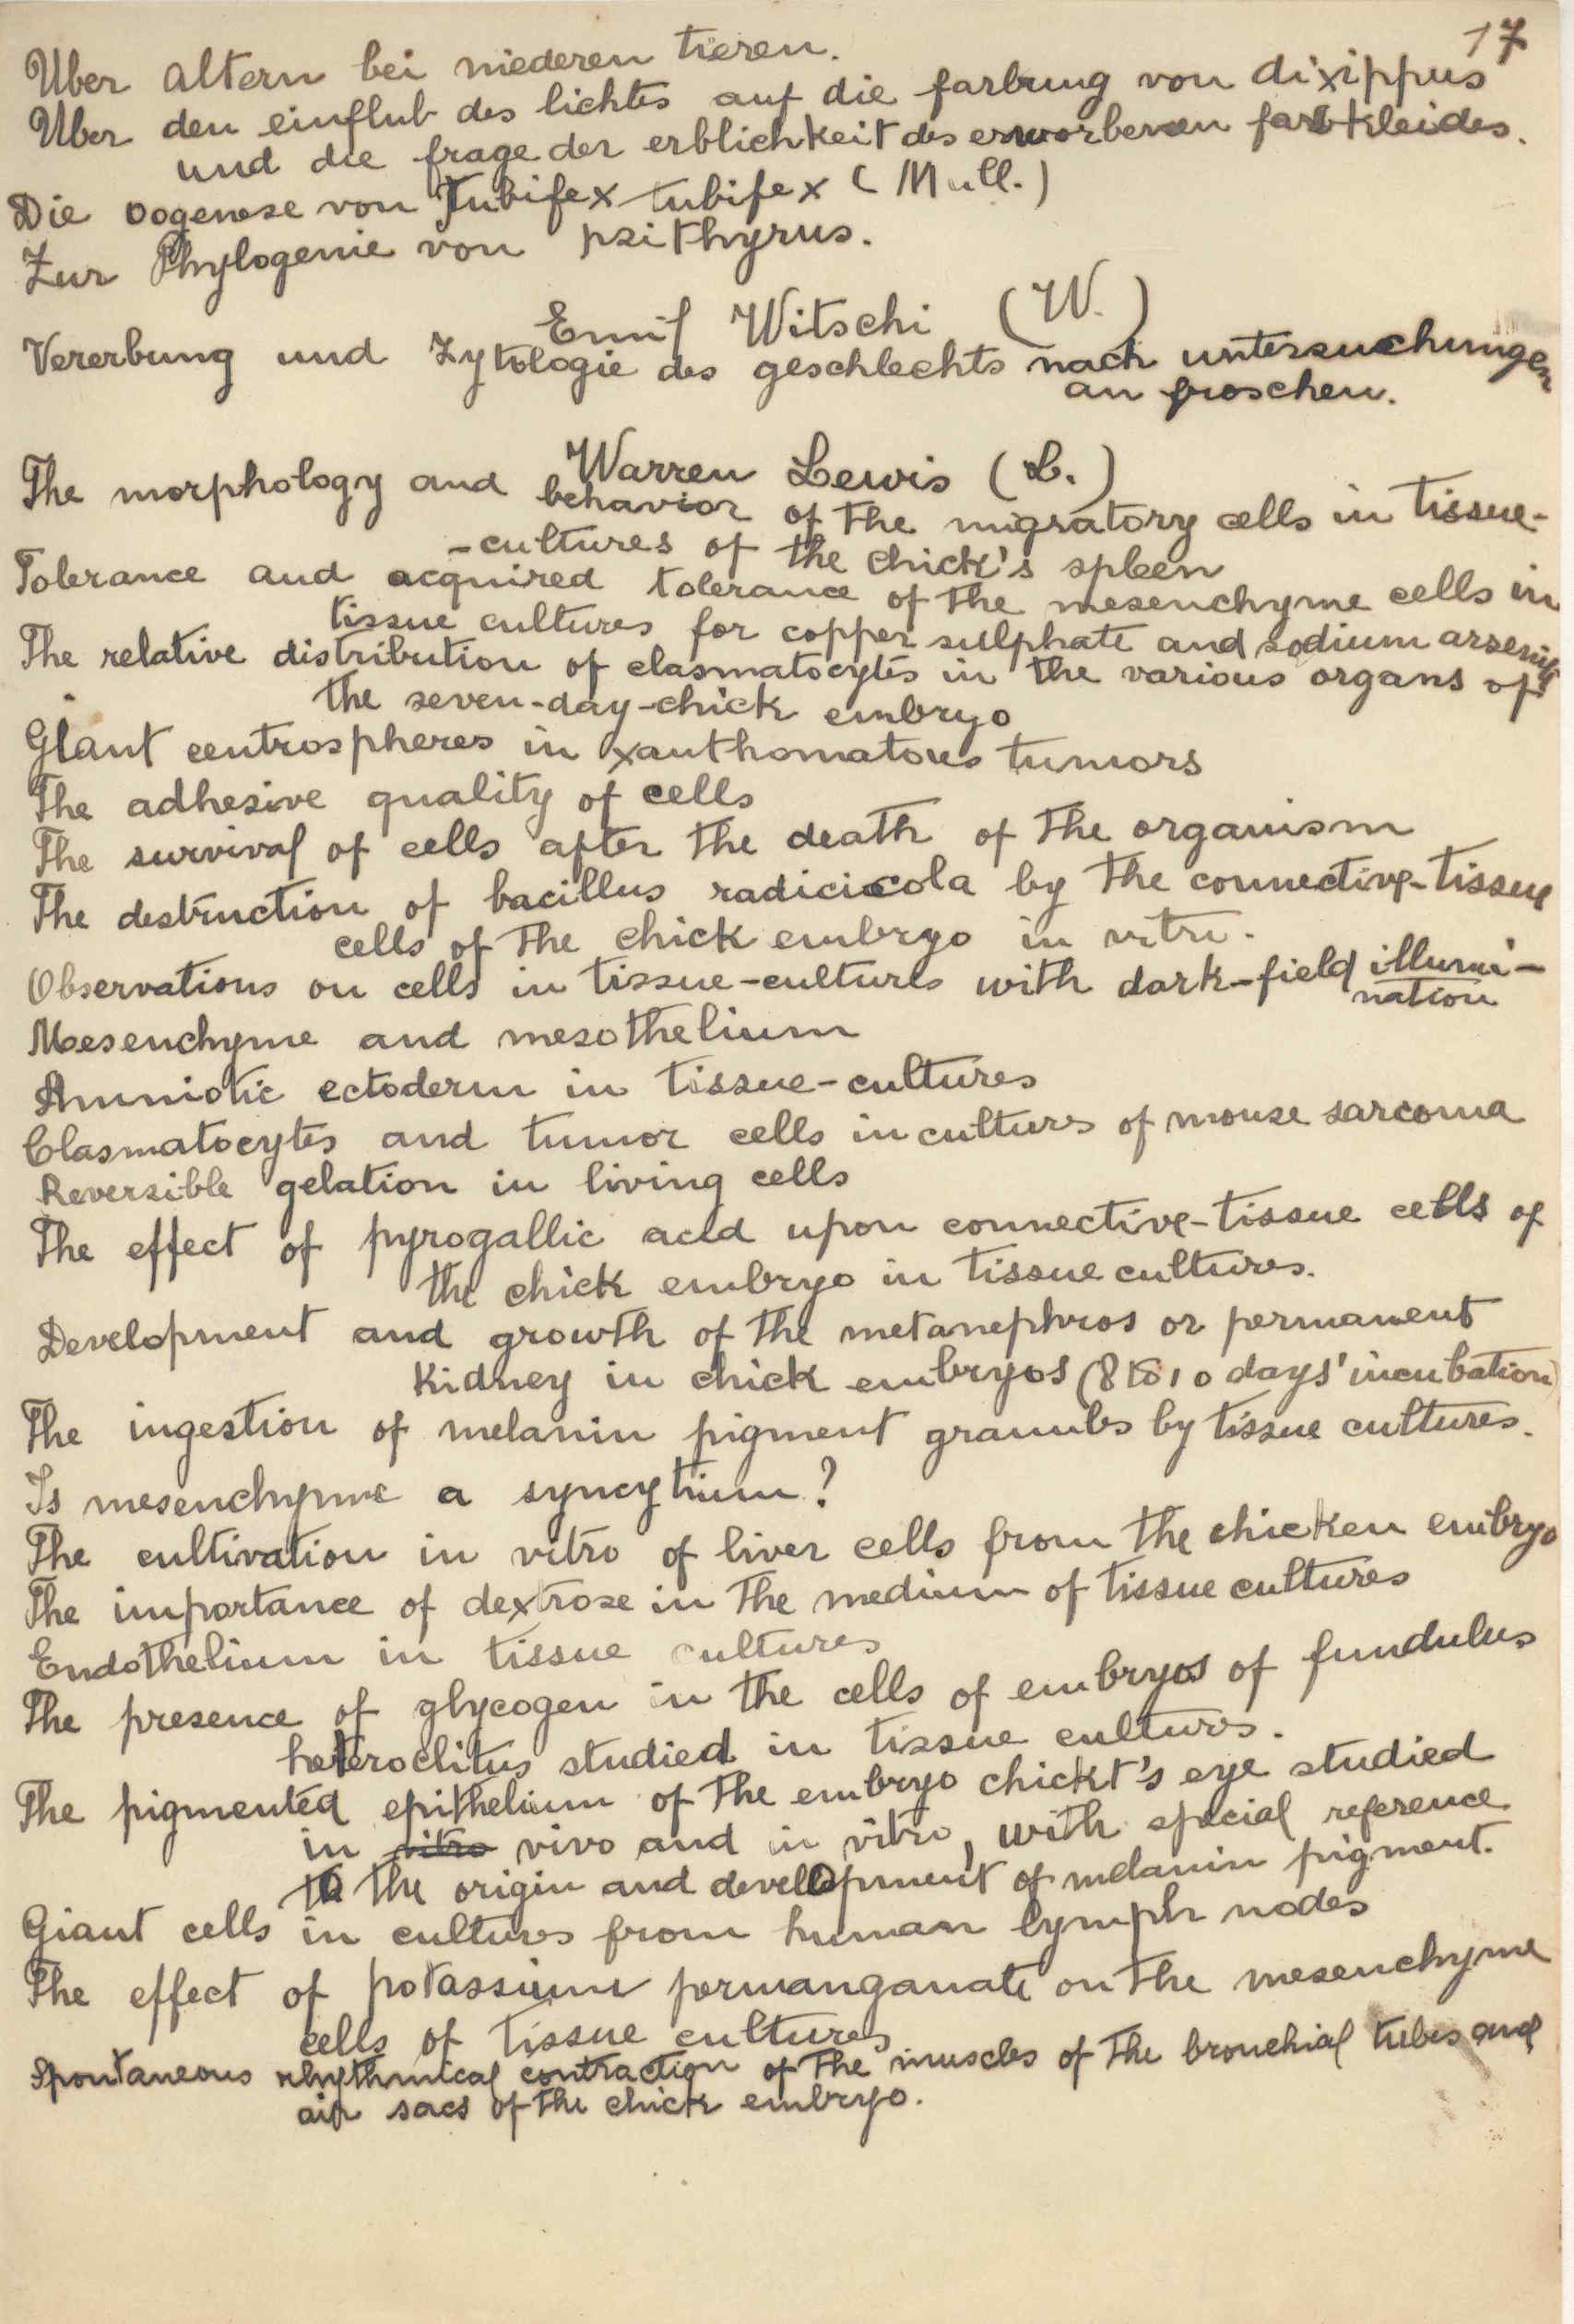 17
Uber altern bei niederen tieren.
Uber den einflub des lichtes auf die farbung von dixippus
und die frage der erblichkeit des erworbenen farbkleides.
Die oogenese von Tubifex tubifex (Mull.)
Zur Phylogenie von psithyrus.
Emil Witschi (W.)
Vererbung und Zytologie des geschlechts nach untersuchungen
an froschen.
Warren Lewis (L.)
The morphology and behavior of the migratory cells in tissue-
-cultures of the chick's spleen
Tolerance and acquired tolerance of the mesenchyme cells in
tissue cultures for copper sulphate and sodium
The relative distribution of clasmatocytes in the various organs of
the seven-day-chick embryo
Giant centrospheres in xanthomatous tumors
The adhesive quality of cells
The survival of cells after the death of the organism
The destruction of bacillus radicicola by the connective-tissue
cells of the chick embryo in vitro.
Observations on cells in tissue-cultures with dark-field illumi-
nation
Mesenchyme and mesothelium
Amniotic ectoderm in tissue-cultures
Clasmatocytes and tumor cells in cultures of mouse sarcoma
Reversible gelation in living cells
The effect of pyrogallic acid upon connective-tissue cells of
the chick embryo in tissue cultures.
Development and growth of the metanephros or permanent
Kidney in chick embryos (8 to 10 days' incubation)
The ingestion of melanin pigment granules by tissue cultures.
Is mesenchyme a syncytium?
The cultivation in vitro of liver cells from the chicken embryo
The importance of dextrose in the medium of tissue cultures
Endothelium in tissue cultures
The presence of glycogen in the cells of embryos of fundulus
heteroclitus studied in tissue cultures.
The pigmented epithelium of the embryo chickt's eye studied
in vitro vivo and in vitro, with special reference
to the origin and development of melanin pigment.
Giant cells in cultures from human lymph nodes
The effect of potassium permanganate on the mesenchyme
cells of tissue cultures
Spontaneous rhythmical contraction of the muscles of the bronchial tubes and
air sacs of the chick embryo.